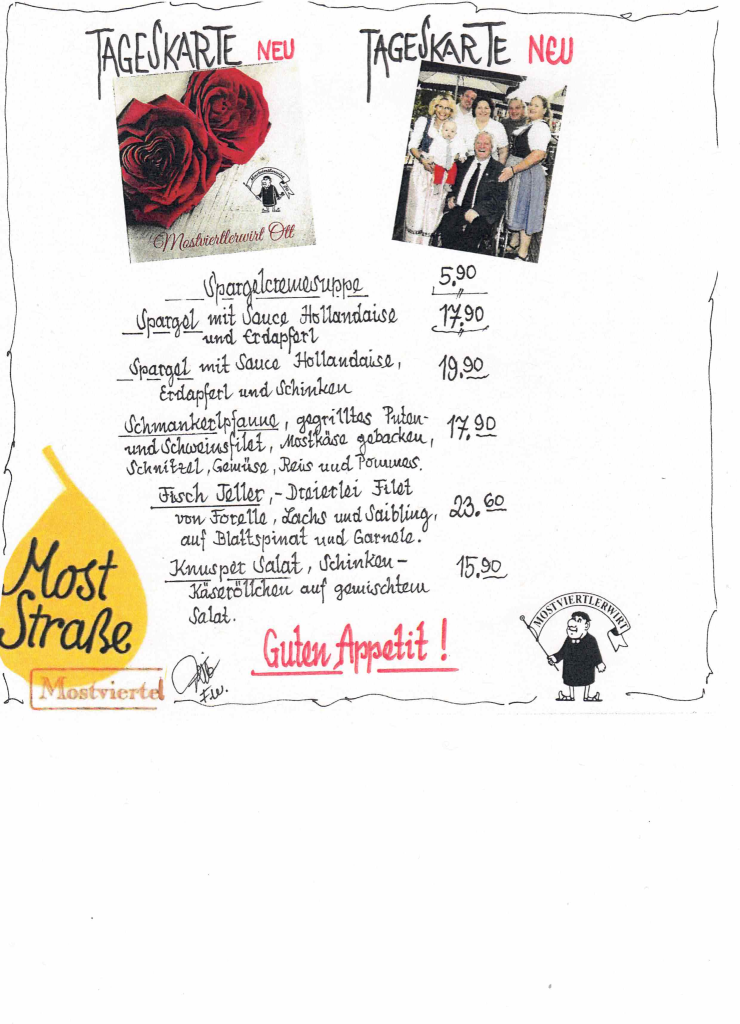 TAGESKARTE NEU
TAGESKARTE NEU
Mostviertlerwirt Ott
Spargelcremesuppe 5.90
Spargel mit Sauce Hollandaise 17.90
und Erdapferl
Spargel mit Sauce Hollandaise, 19.90
Erdapferl und Schinken
Schmankerlpfanne, gegrilltes Puten- 17.90
und Schweinsfilet, Mostkäse gebacken,
Schnitzel, Gemüse, Reis und Pommes.
Fisch Teller, - Dreierlei Filet 23.60
von Forelle, Lachs und Saibling,
auf Blattspinat und Garnele.
Knusper Salat, Schinken- 15.90
Käseröllchen auf gemischtem
Salat.
Guten Appetit !
Most
Straße
Mostviertel
MOSTVIERTLERWIRT